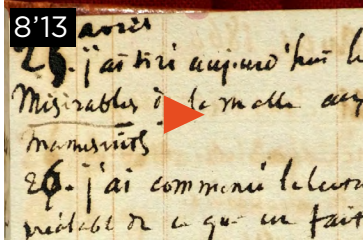 8'13
avril
25. j'ai tiré aujourd'hui le
Misérables de la malle aux
manuscrits
26. j'ai commencé
de ce que un fait